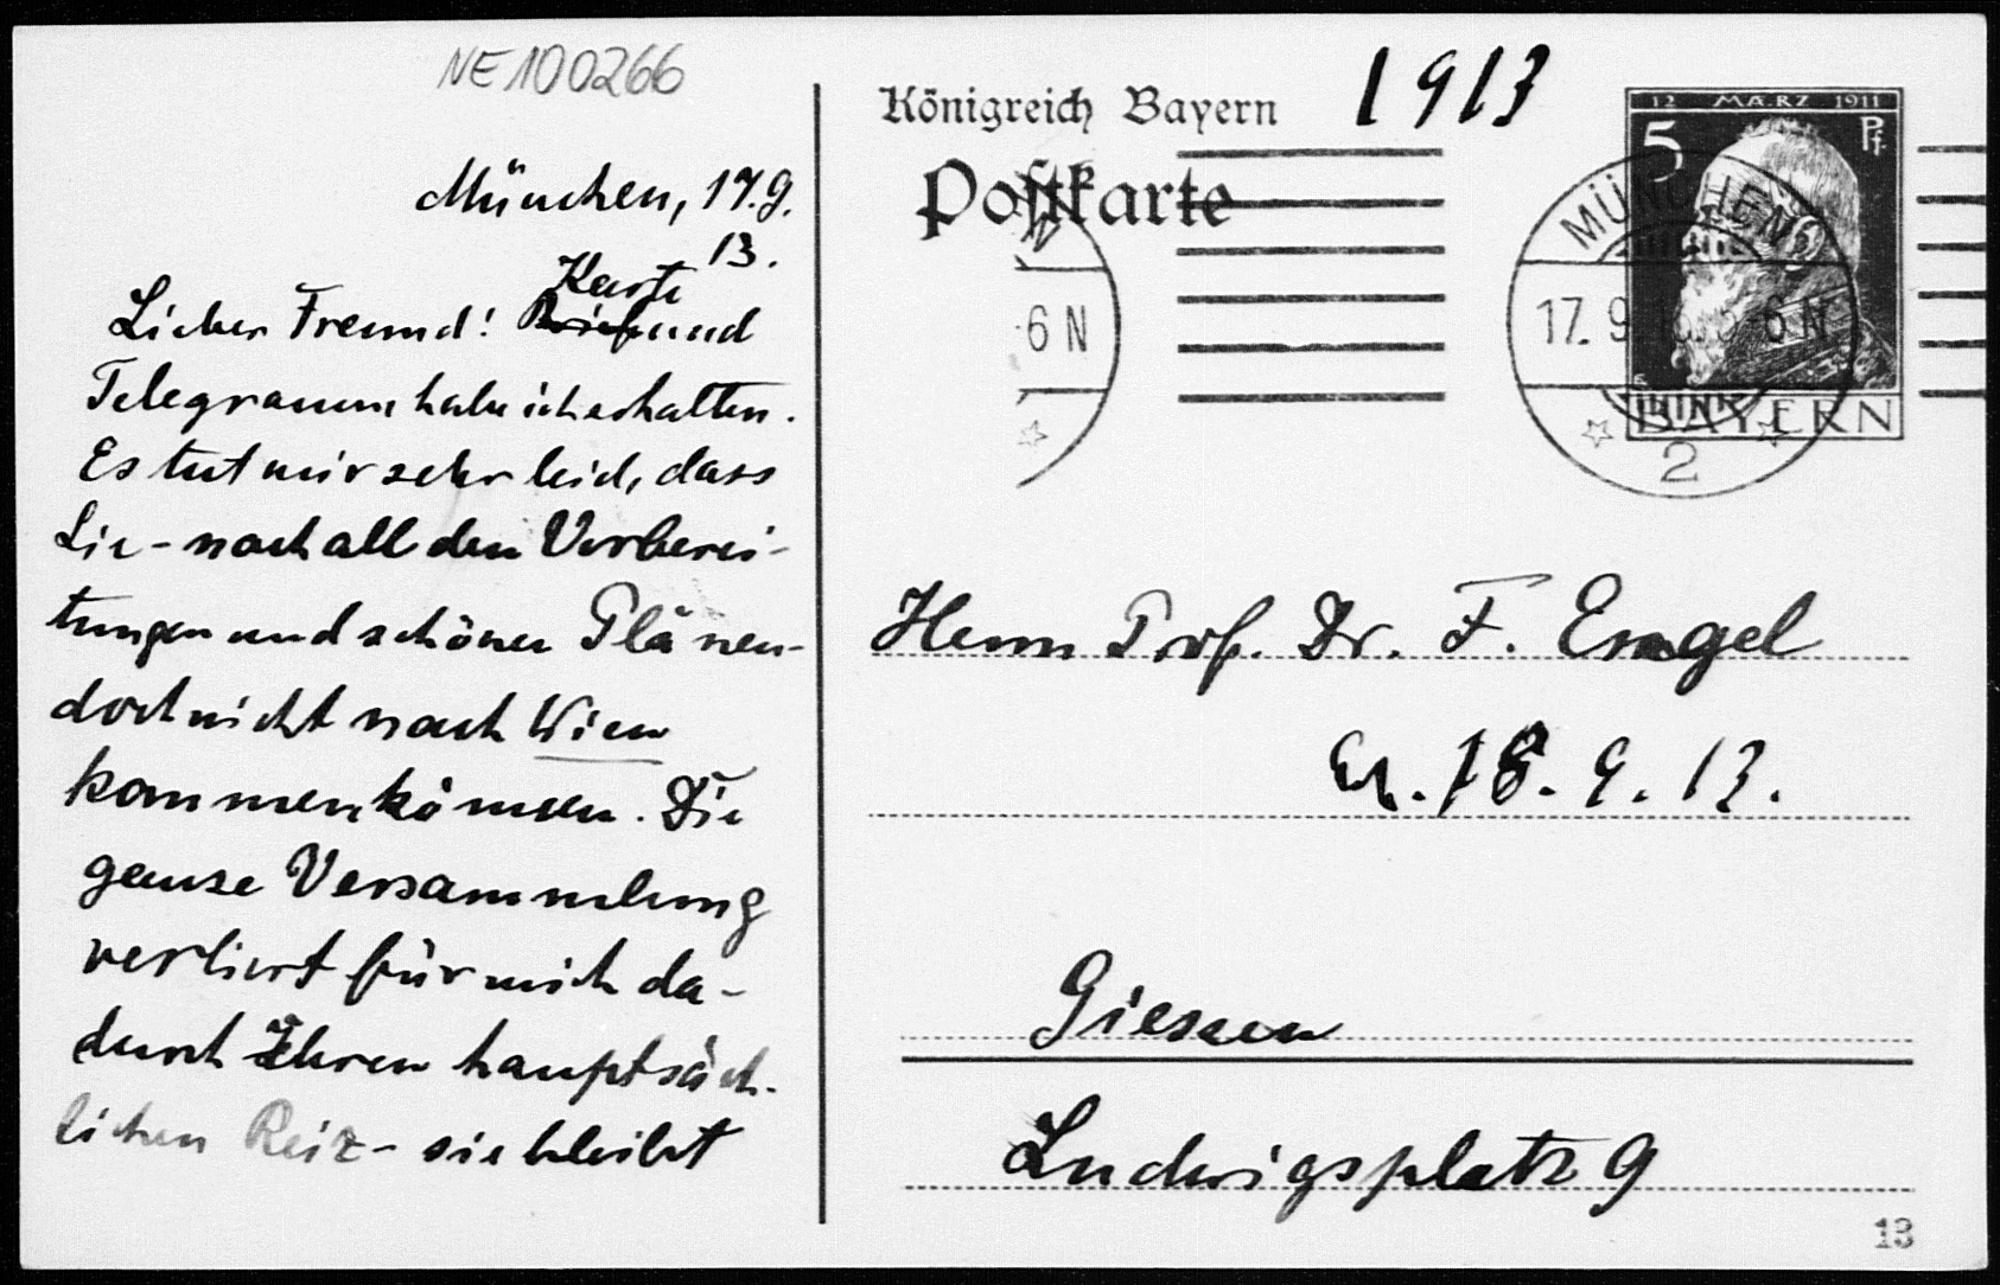 NE100266
München, 17.9.
13.
Karte
Lieber Freund! Brief und
Telegramm habe ich erhalten.
Es tut mir sehr leid, dass
Sie - nach all den Vorberei-
tungen und schönen Plänen -
doch nicht nach Wien
kommen können. Die
ganze Versammlung
verliert für mich da-
durch Ihren hauptsäch-
lichen Reiz - sie bleibt
1913
Königreich Bayern
Postkarte
12 MÄRZ 1911
5 Pf
BAYERN
MÜNCHEN
17. 9. 5-6 N
2
N
6 N
Herrn Prof. Dr. F. Engel
Er. 18. 9. 13.
Giessen
Ludwigsplatz 9
13